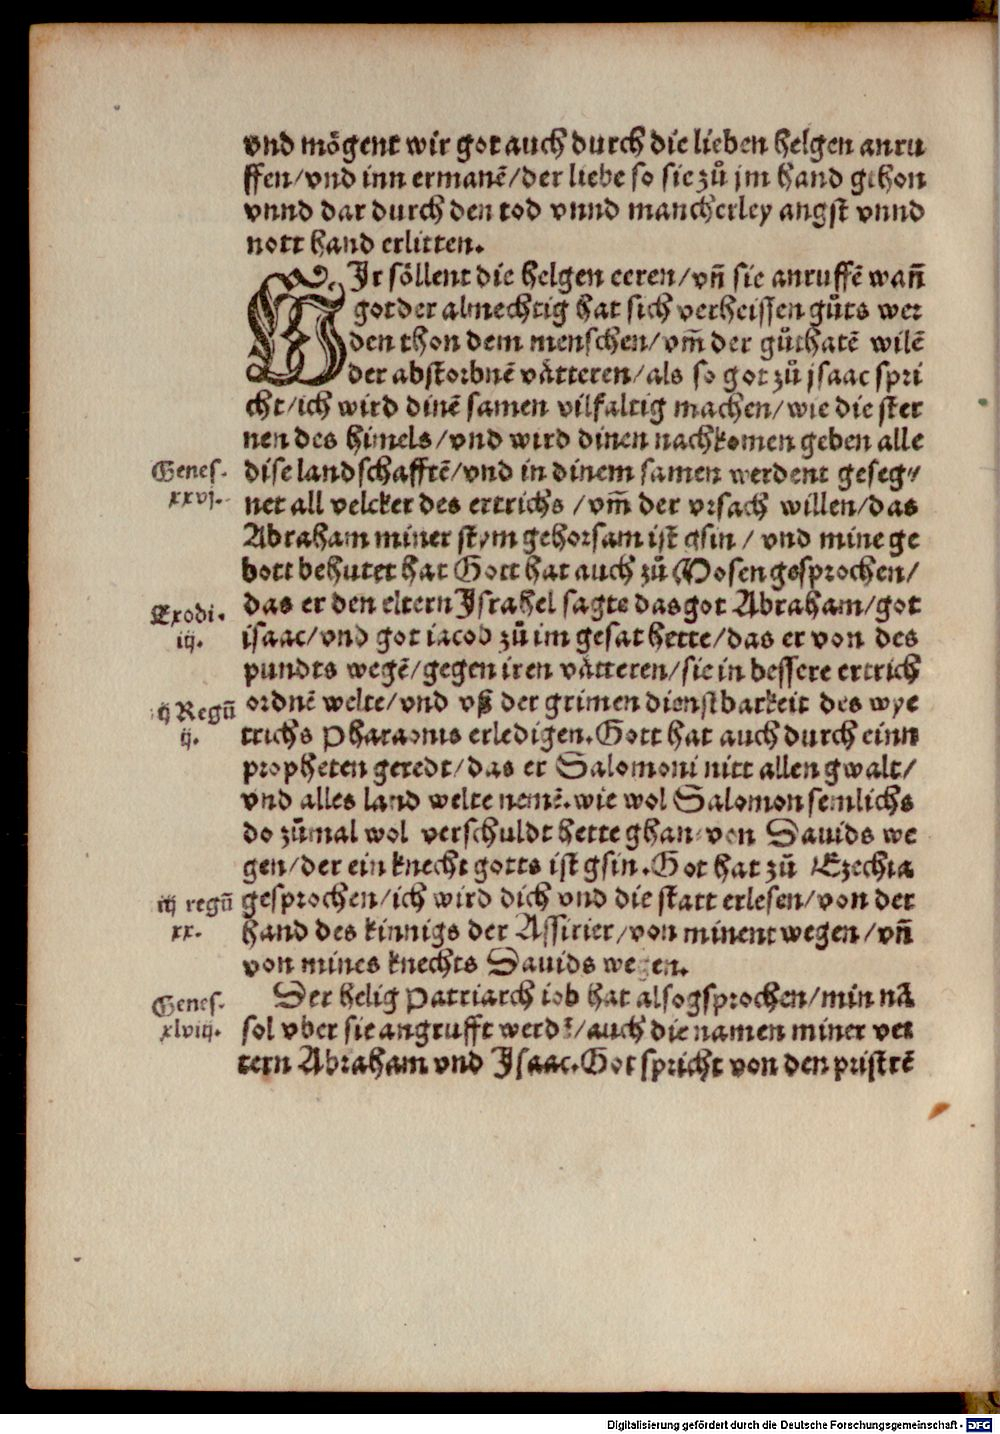 vnd mögent wir got auch durch die lieben helgen anru
ffen/vnd inn ermanē/der liebe so sie zů jm hand gehon
vnnd dar durch den tod vnnd mancherley angst vnnd
nott hand erlitten.
WIr söllent die helgen eeren/vñ sie anruffē wañ
got der almechtig hat sich verheissen gůts wer
den thon dem menschen/vm̄ der gůthatē wilē
der abstorbnē vätteren/als so got zů jsaac spri
cht/ich wird dinē samen vilfaltig machen/wie die ster
nen des himels/vnd wird dinen nachkomen geben alle
Genes.
xxvj.
dise landschafftē/vnd in dinem samen werdent geseg⸗
net all velcker des ertrichs /vm̄ der vrsach willen/das
Abraham miner stym gehorsam ist gsin / vnd mine ge
bott behutet hat Gott hat auch zů Mosen gesprochen/
Exodi.
iij.
das er den eltern Israhel sagte das got Abraham/got
isaac/vnd got iacob zů im gesat hette/das er von des
pundts wegē/gegen iren vätteren/sie in bessere ertrich
iij Regū
ij.
ordnē welte/vnd vß der grimen dienstbarkeit des wye
trichs Pharaonis erledigen. Gott hat auch durch einn
propheten geredt/das er Salomoni nitt allen gwalt/
vnd alles land welte nemē. wie wol Salomon semlichs
do zůmal wol verschuldt hette ghan/von Dauids we
gen/der ein knecht gotts ist gsin. Got hat zů Ezechia
iiij regū
xx.
gesprochen/ich wird dich vnd die statt erlesen/von der
hand des kinnigs der Assirier/von minent wegen/vñ
von mines knechts Dauids wegen.
Genes.
xlviij.
Der helig Patriarch iob hat also gsprochen/min nā
sol vber sie angrufft werdē/auch die namen miner vet
tern Abraham vnd Isaac. Got spricht von den pristrē
Digitalisierung gefördert durch die Deutsche Forschungsgemeinschaft - DFG